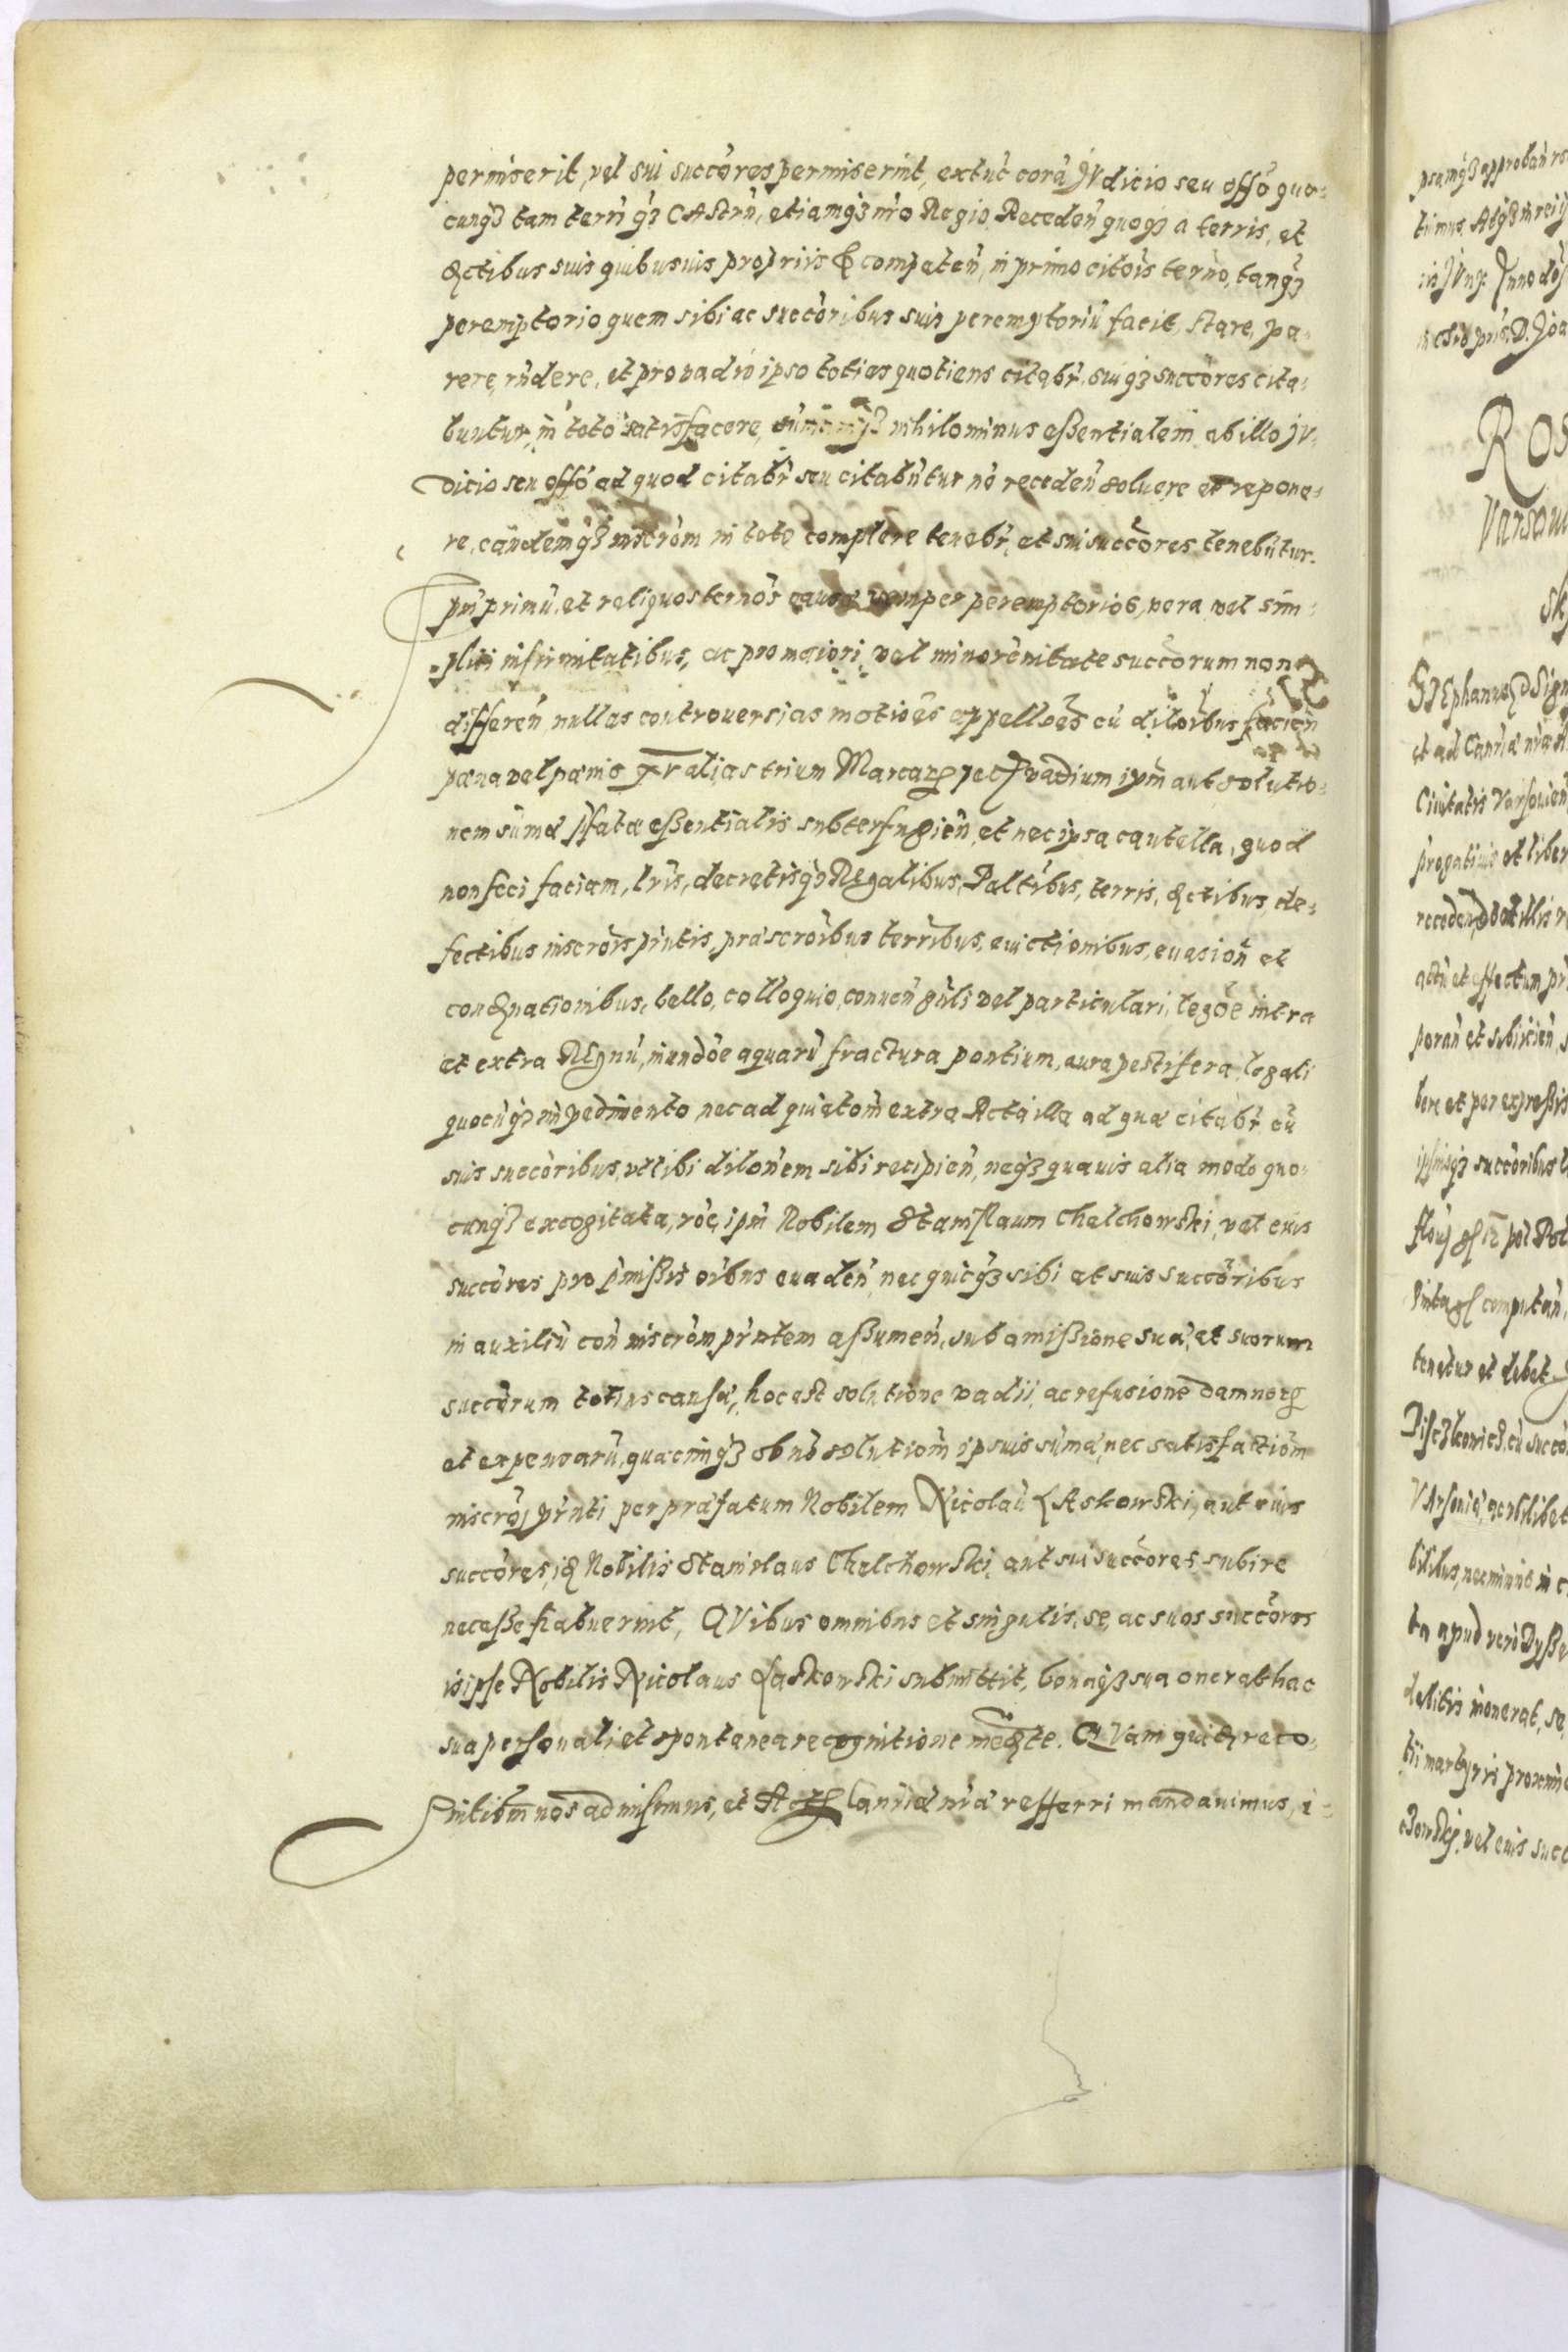 permiserit, vel sui succores permiserint, extunc corā Judicio seu offo quo-
cunq3 tam terrn q3 Castrn, etiamq3 nro Regio. Receden quoq3 a terris, et
Actibus suis quibusuis propriis & competen, in primo citois termo, tanq3
peremptorio quem sibi ac succoribus suis peremptoriū facit, stare, pa-
rere, rndere, et pro vadio ipso toties quotiens citabr, suiq3 succores cita-
buntur, in toto satisfacere, nihilominus eßentialem ab illo Ju-
dicio seu offo ad quod citabr seu citabūtur nō receden soluere et repone-
re, eandemq3 inscrom in toto complere tenebr, et sui succores tenebūtur.
pn primū, et reliquos ternos causæ semper peremptorios, vera vel sim-
plici infirmitatibus, ac pro maiori vel minorenitate succorum non
differen nullas controuersias motioes appelloes cū diloibus facien
pœna vel pœnis gralias trium Marcar7 vadium ipm aut solutio-
nem sūmæ pfatæ eßentialis subterfugien, et nec ipsa cautella, quod
non feci faciam, lris, decretisq3 Regalibus, Paltibus, terris, Actibus, de-
fectibus inscrois pntis, præscroibus terribus, euictionibus, euasion et
condnationibus, bello, colloquio, conuen gnli vel particulari, legoe intra
et extra Regnū, inundoe aquarū fractura pontium, aura pestifera, legali
quocūq3 impedimento, nec ad quietom extra Acta illa ad quæ citabr cū
suis succoribus, vt ibi dilonem sibi recipien, neq3 quauis alia modo quo-
cunq3 excogitata, roe, ipm Nobilem Stanislaum Chelchowski, vel eius
succores pro pmißis oibus euaden, nec quicq3 sibi et suis succoribus
in auxiliū con inscrom pntem aßumen, sub amißione sua, et suorum
succorum totius causæ, hoc est solutione vadii, ac refusione damnor7
et expensarū, quæcunq3 ob nō solutiom ipsius sūmæ, nec satisfactiom
inscroj pnti per præfatum Nobilem Nicolaū Laskowski, aut eius
succores, id Nobilis Stanislaus Chelchowski, aut sui succores subire
neceße habuerint, QVibus omnibus et singulis, se, ac suos succores
is ipse Nobilis Nicolaus Laskowski submittit, bonaq3 sua onerat hac
sua personali et spontanea recognitione medte. QVam quid reco-
nos admisimus, et Act Canriæ nræ refferri mandauimus, i-

psamq3 approban
timus. Atq3 in rei
Anno do
Ros
Varsoui
sk
Stephanus D Sign
et ad Canriæ nræ A
Ciuitatis Varsouien
receden illis
actū et effectum pn
poran et subiicien
bere et per expreßis
ipsiusq3 succoribus
computan
tenetur et debet
cū succo
Varsouiæ, ac
bilibus, nec minus in
ta apud
se
tii martyris proxime
vel eius succ